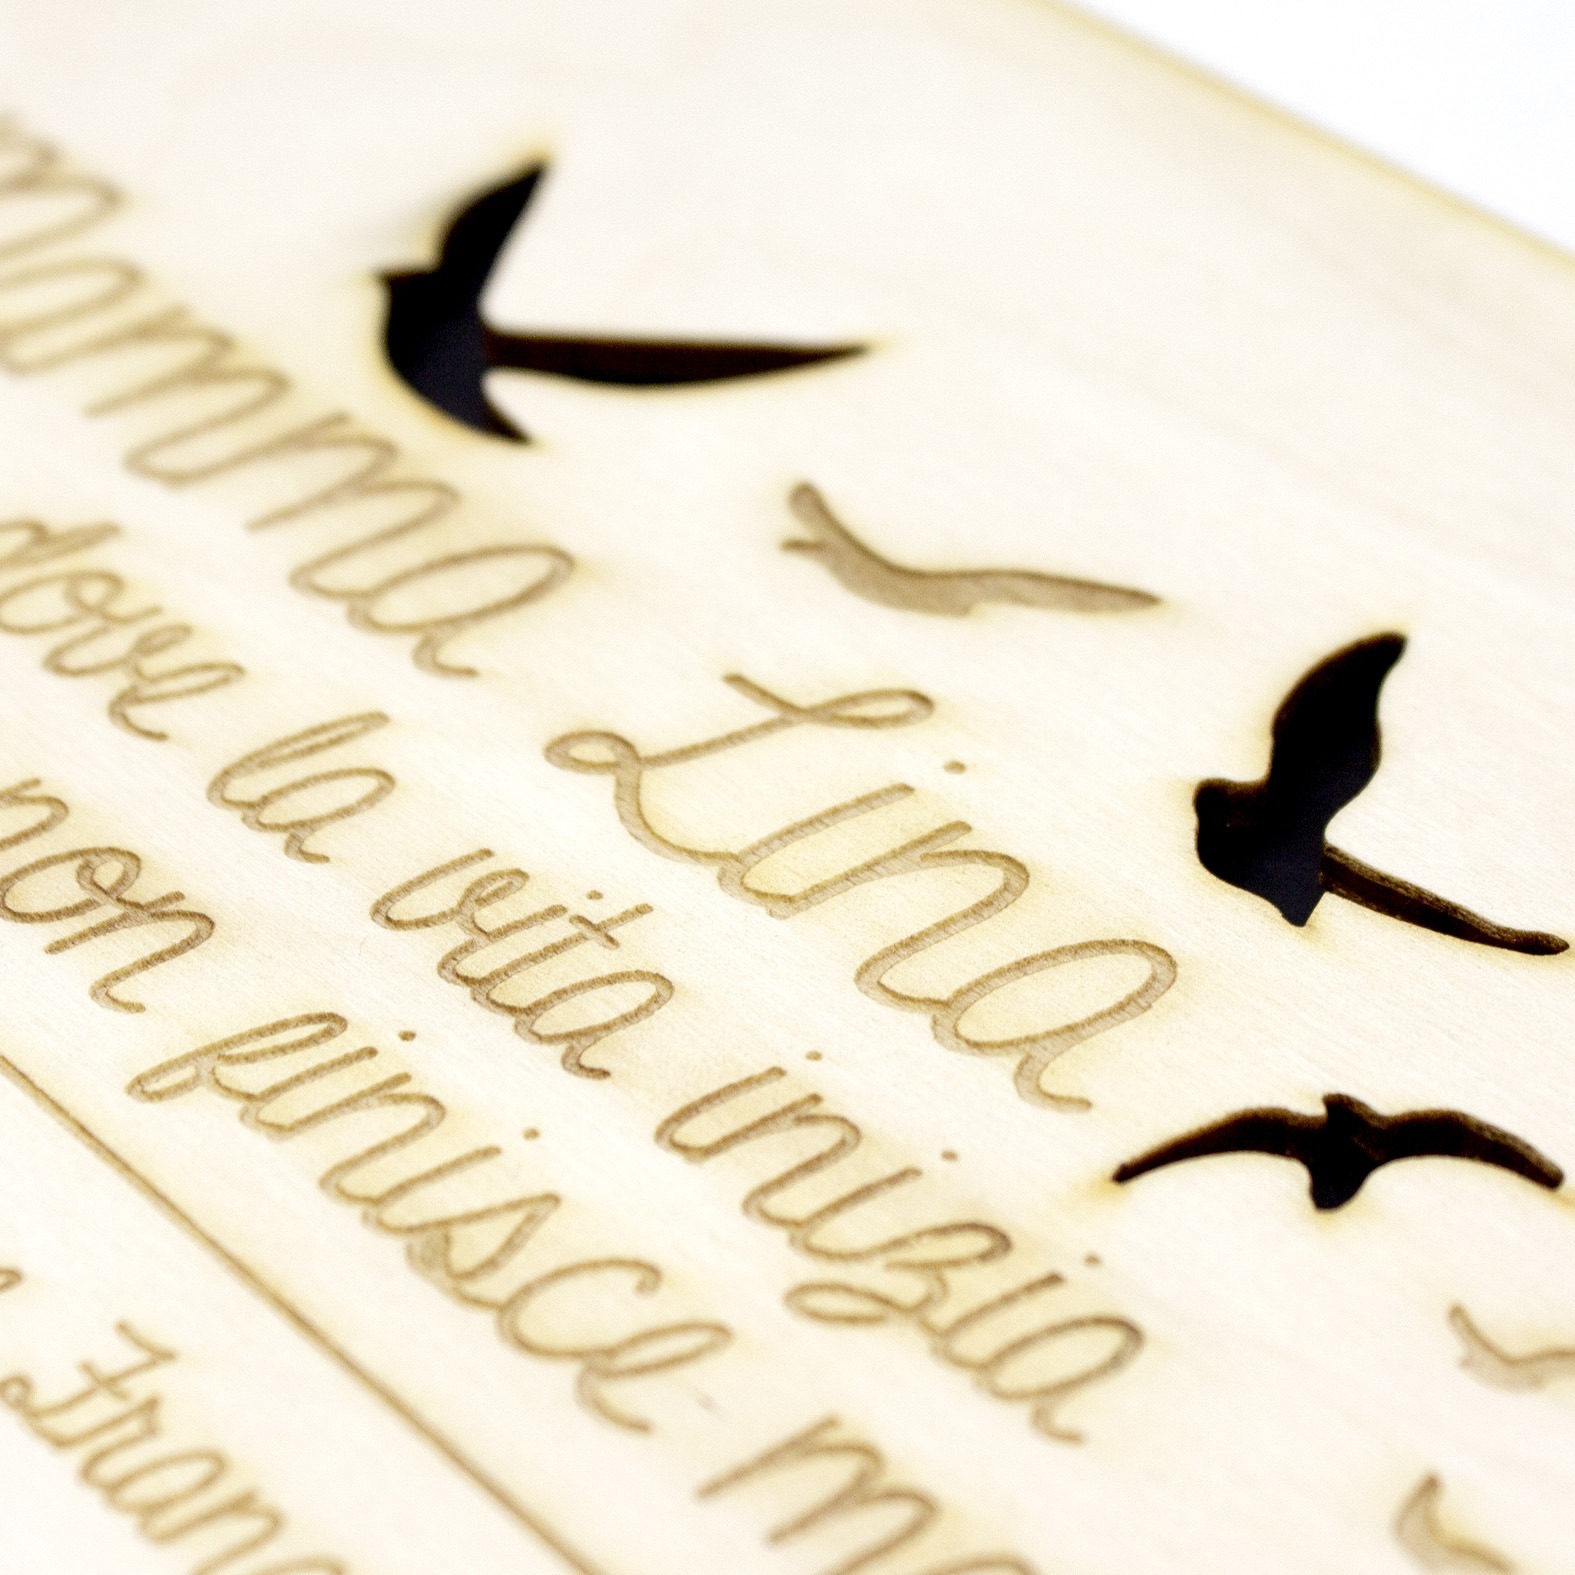 nonna Lina
dove la vita inizia
non finisce
Fran